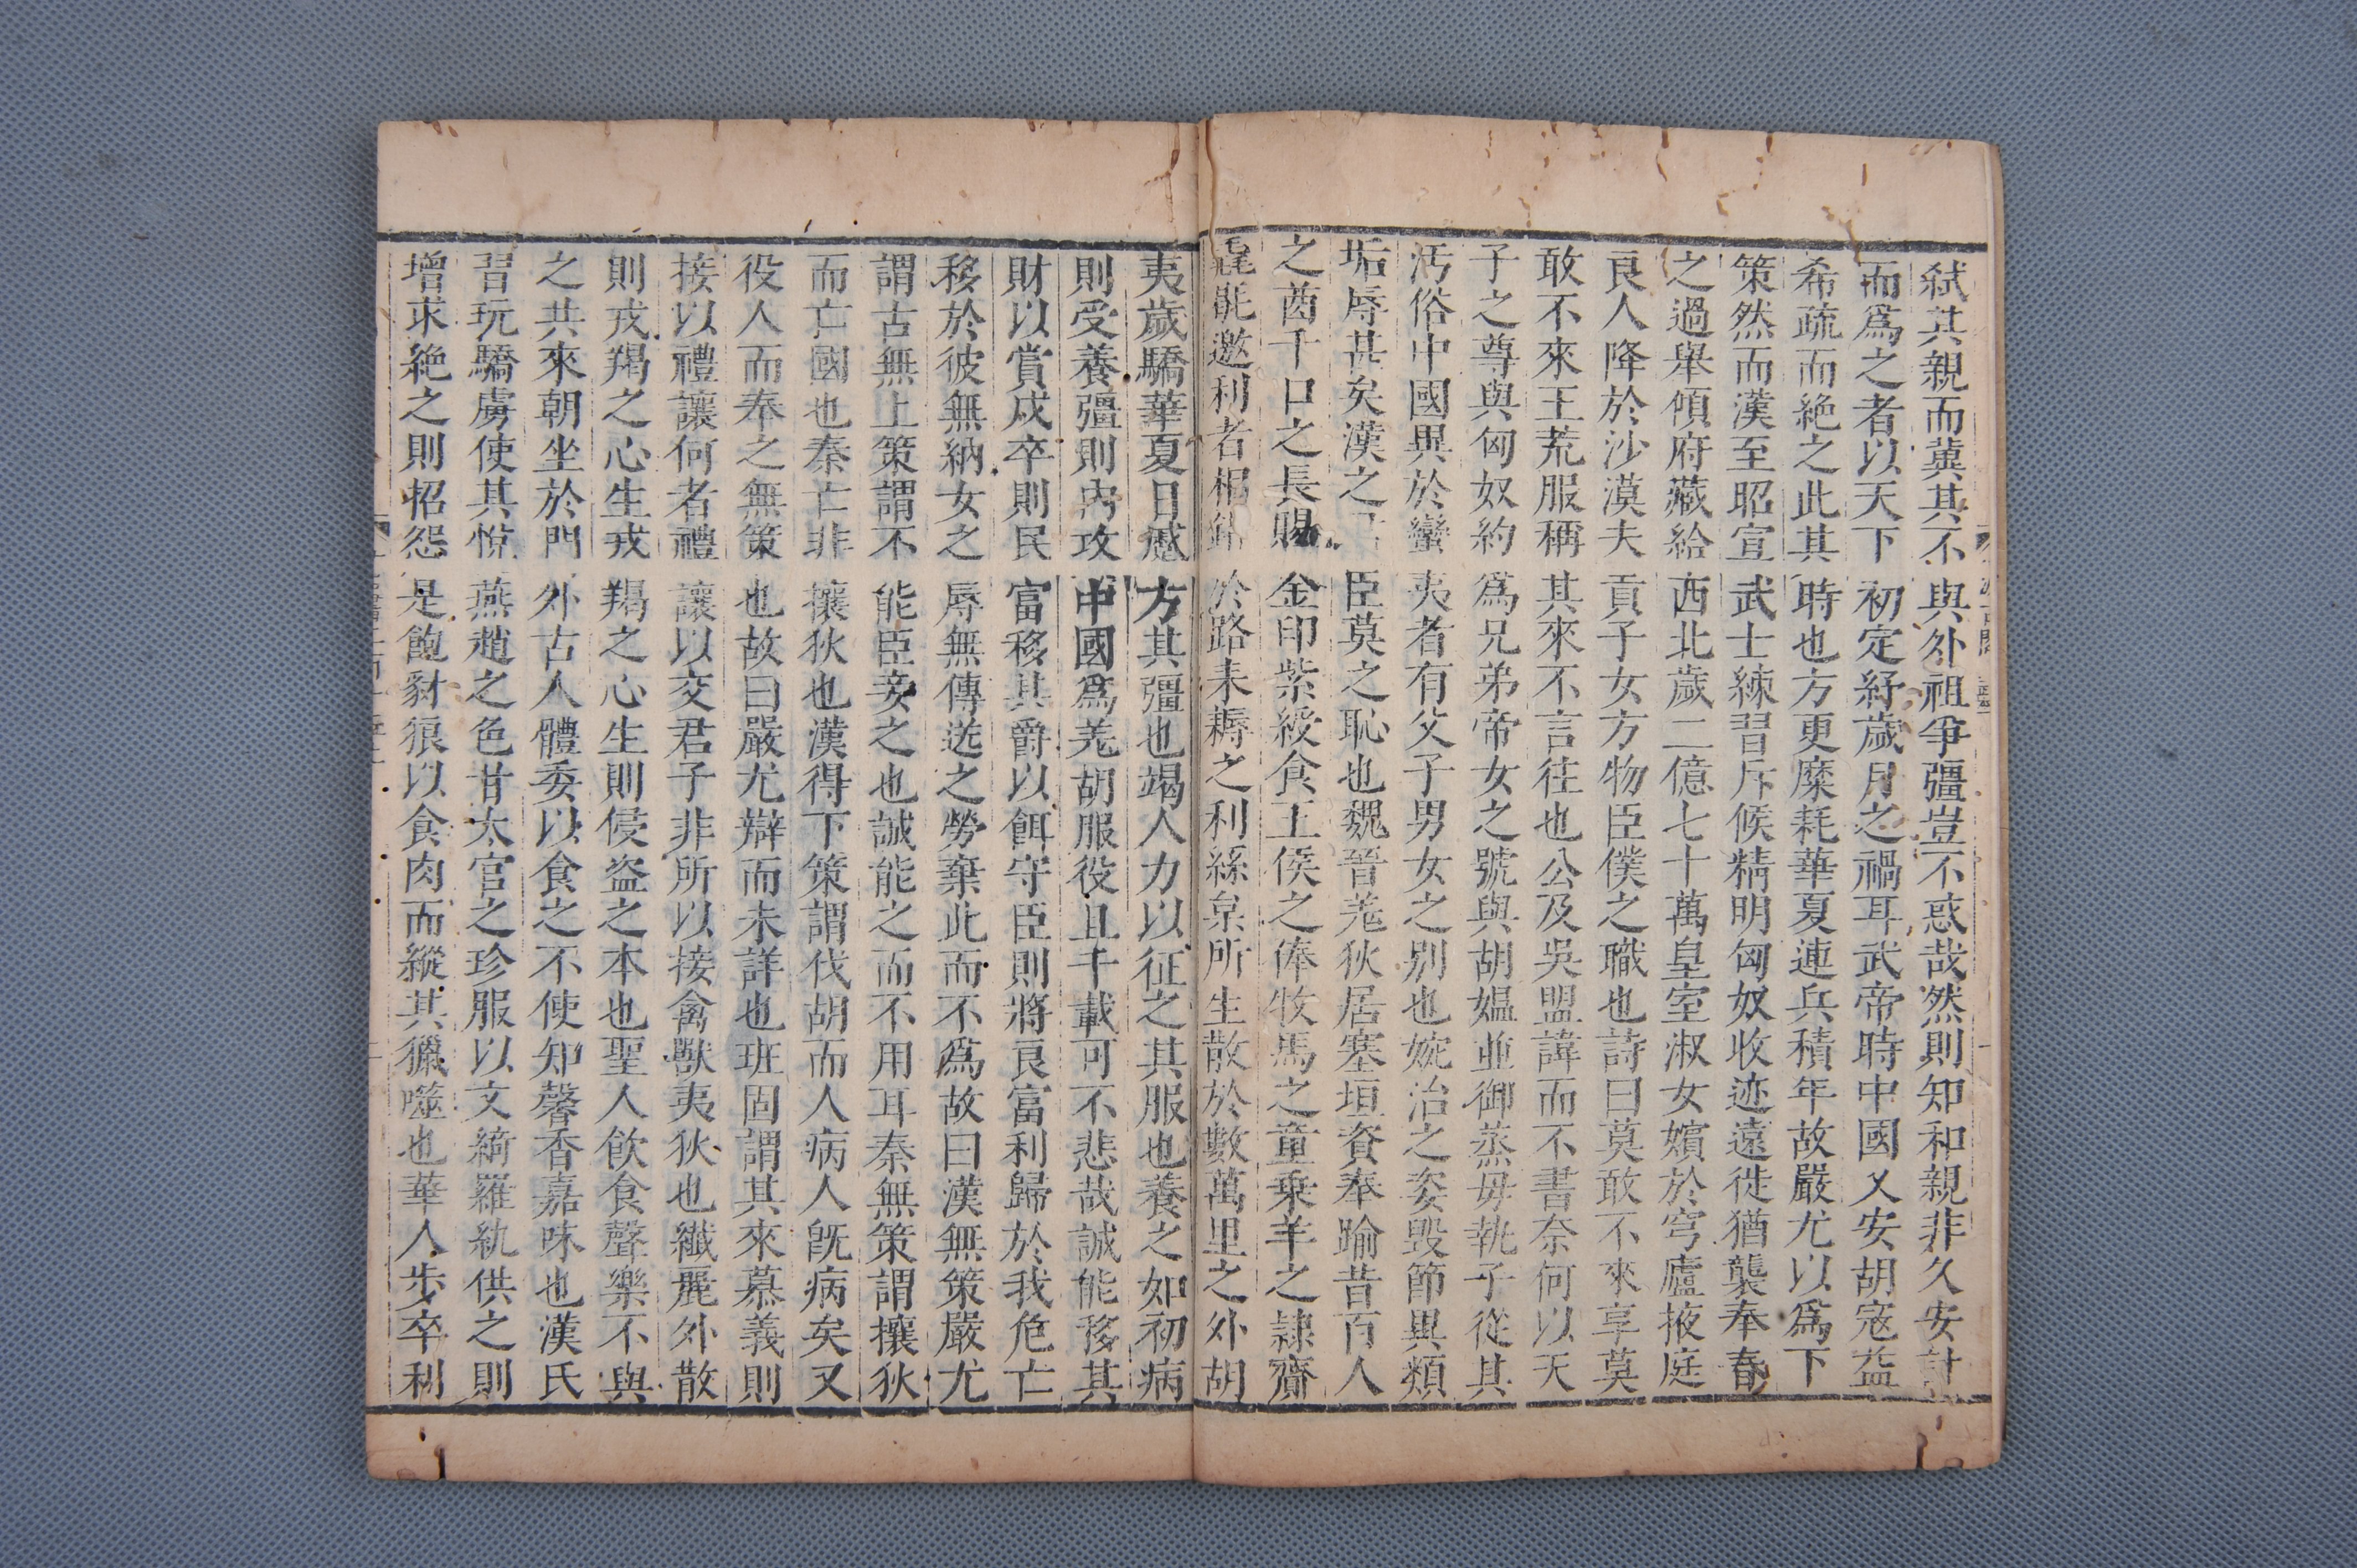 弑其親而冀其不與外祖爭彊豈不惑哉然則知和親非久安計
而爲之者以天下初定紓歲月之禍耳武帝時中國乂安胡寇益
希疏而絶之此其時也方更糜耗華夏連兵積年故嚴尤以爲下
策然而漢至昭宣武士練習斥候精明匈奴收迹遠徙猶襲奉春
之過舉傾府藏給西北歲二億七十萬皇室淑女嬪於穹廬掖庭
良人降於沙漠夫貢子女方物臣僕之職也詩曰莫敢不來享莫
敢不來王荒服稱其來不言往也公及吳盟諱而不書奈何以天
子之尊與匈奴約爲兄弟帝女之號與胡媼並御蒸毋執子從其
汚俗中國異於蠻夷者有父子男女之別也婉治之姿毀節異類
垢辱甚矣漢之君臣莫之恥也魏晉羌狄居塞垣資奉踰昔百人
之酋千口之長賜金印紫綬食王侯之俸牧馬之童乗羊之隷齎
毳毼邀利者相錯於路耒耨之利絲枲所生散於數萬里之外胡
夷歲驕華夏日蹙方其彊也竭人力以征之其服也養之如初病
則受養彊則內攻中國爲羌胡服役且千載可不悲哉誠能移其
財以賞戍卒則民富移其爵以餌守臣則將良富利歸於我危亡
移於彼無納女之辱無傳送之勞棄此而不爲故曰漢無策嚴尤
謂古無上策謂不能臣妾之也誠能之而不用耳秦無策謂攘狄
而亡國也秦亡非攘狄也漢得下策謂伐胡而人病人旣病矣又
役人而奉之無策也故曰嚴尤辯而未詳也班固謂其來慕義則
接以禮讓何者禮讓以交君子非所以接禽獸夷狄也纖麗外散
則戎羯之心生戎羯之心生則侵盗之本也聖人飲食聲樂不與
之共來朝坐於門外古人體委以食之不使知馨香嘉味也漢氏
習玩驕虜使其悅燕趙之色甘太官之珍服以文綺羅紈供之則
增求絶之則招怨是飽豺狼以食肉而縱其獵噬也華人步卒利